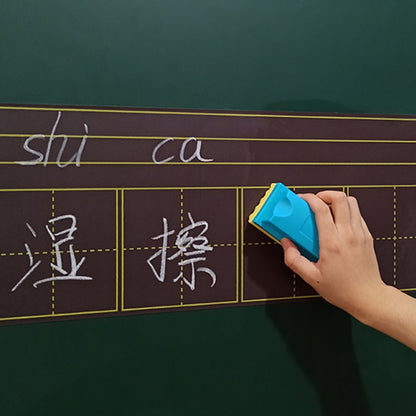 shi ca
湿 擦